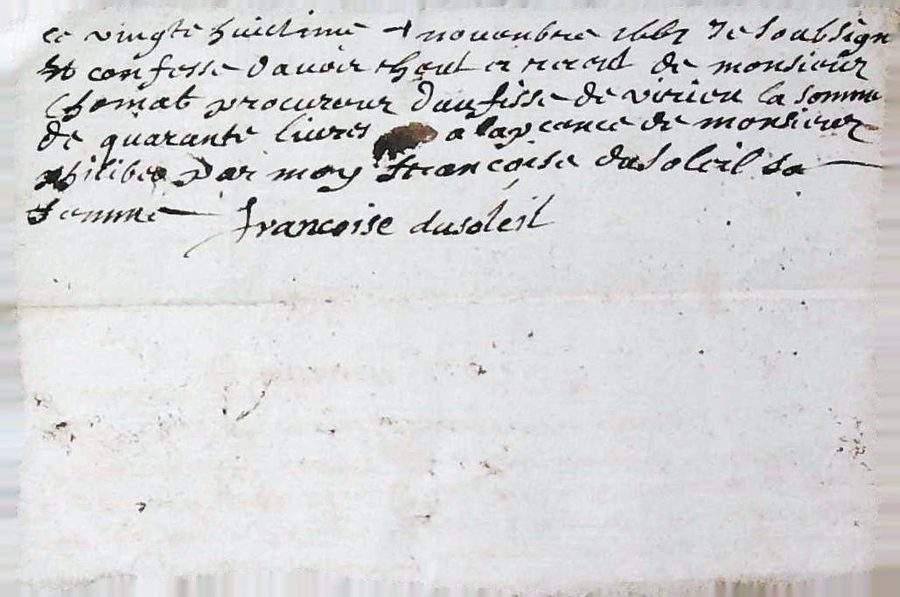 ce vingte huictime novenbre 1667 Je soubsign
et confesse davoir et receut de monsieur
Chomat procureur doufisse de virieu la somme
de quarante livres a la presance de monsieur
par moy francoise dusoleil sa
femme francoise dusoleil